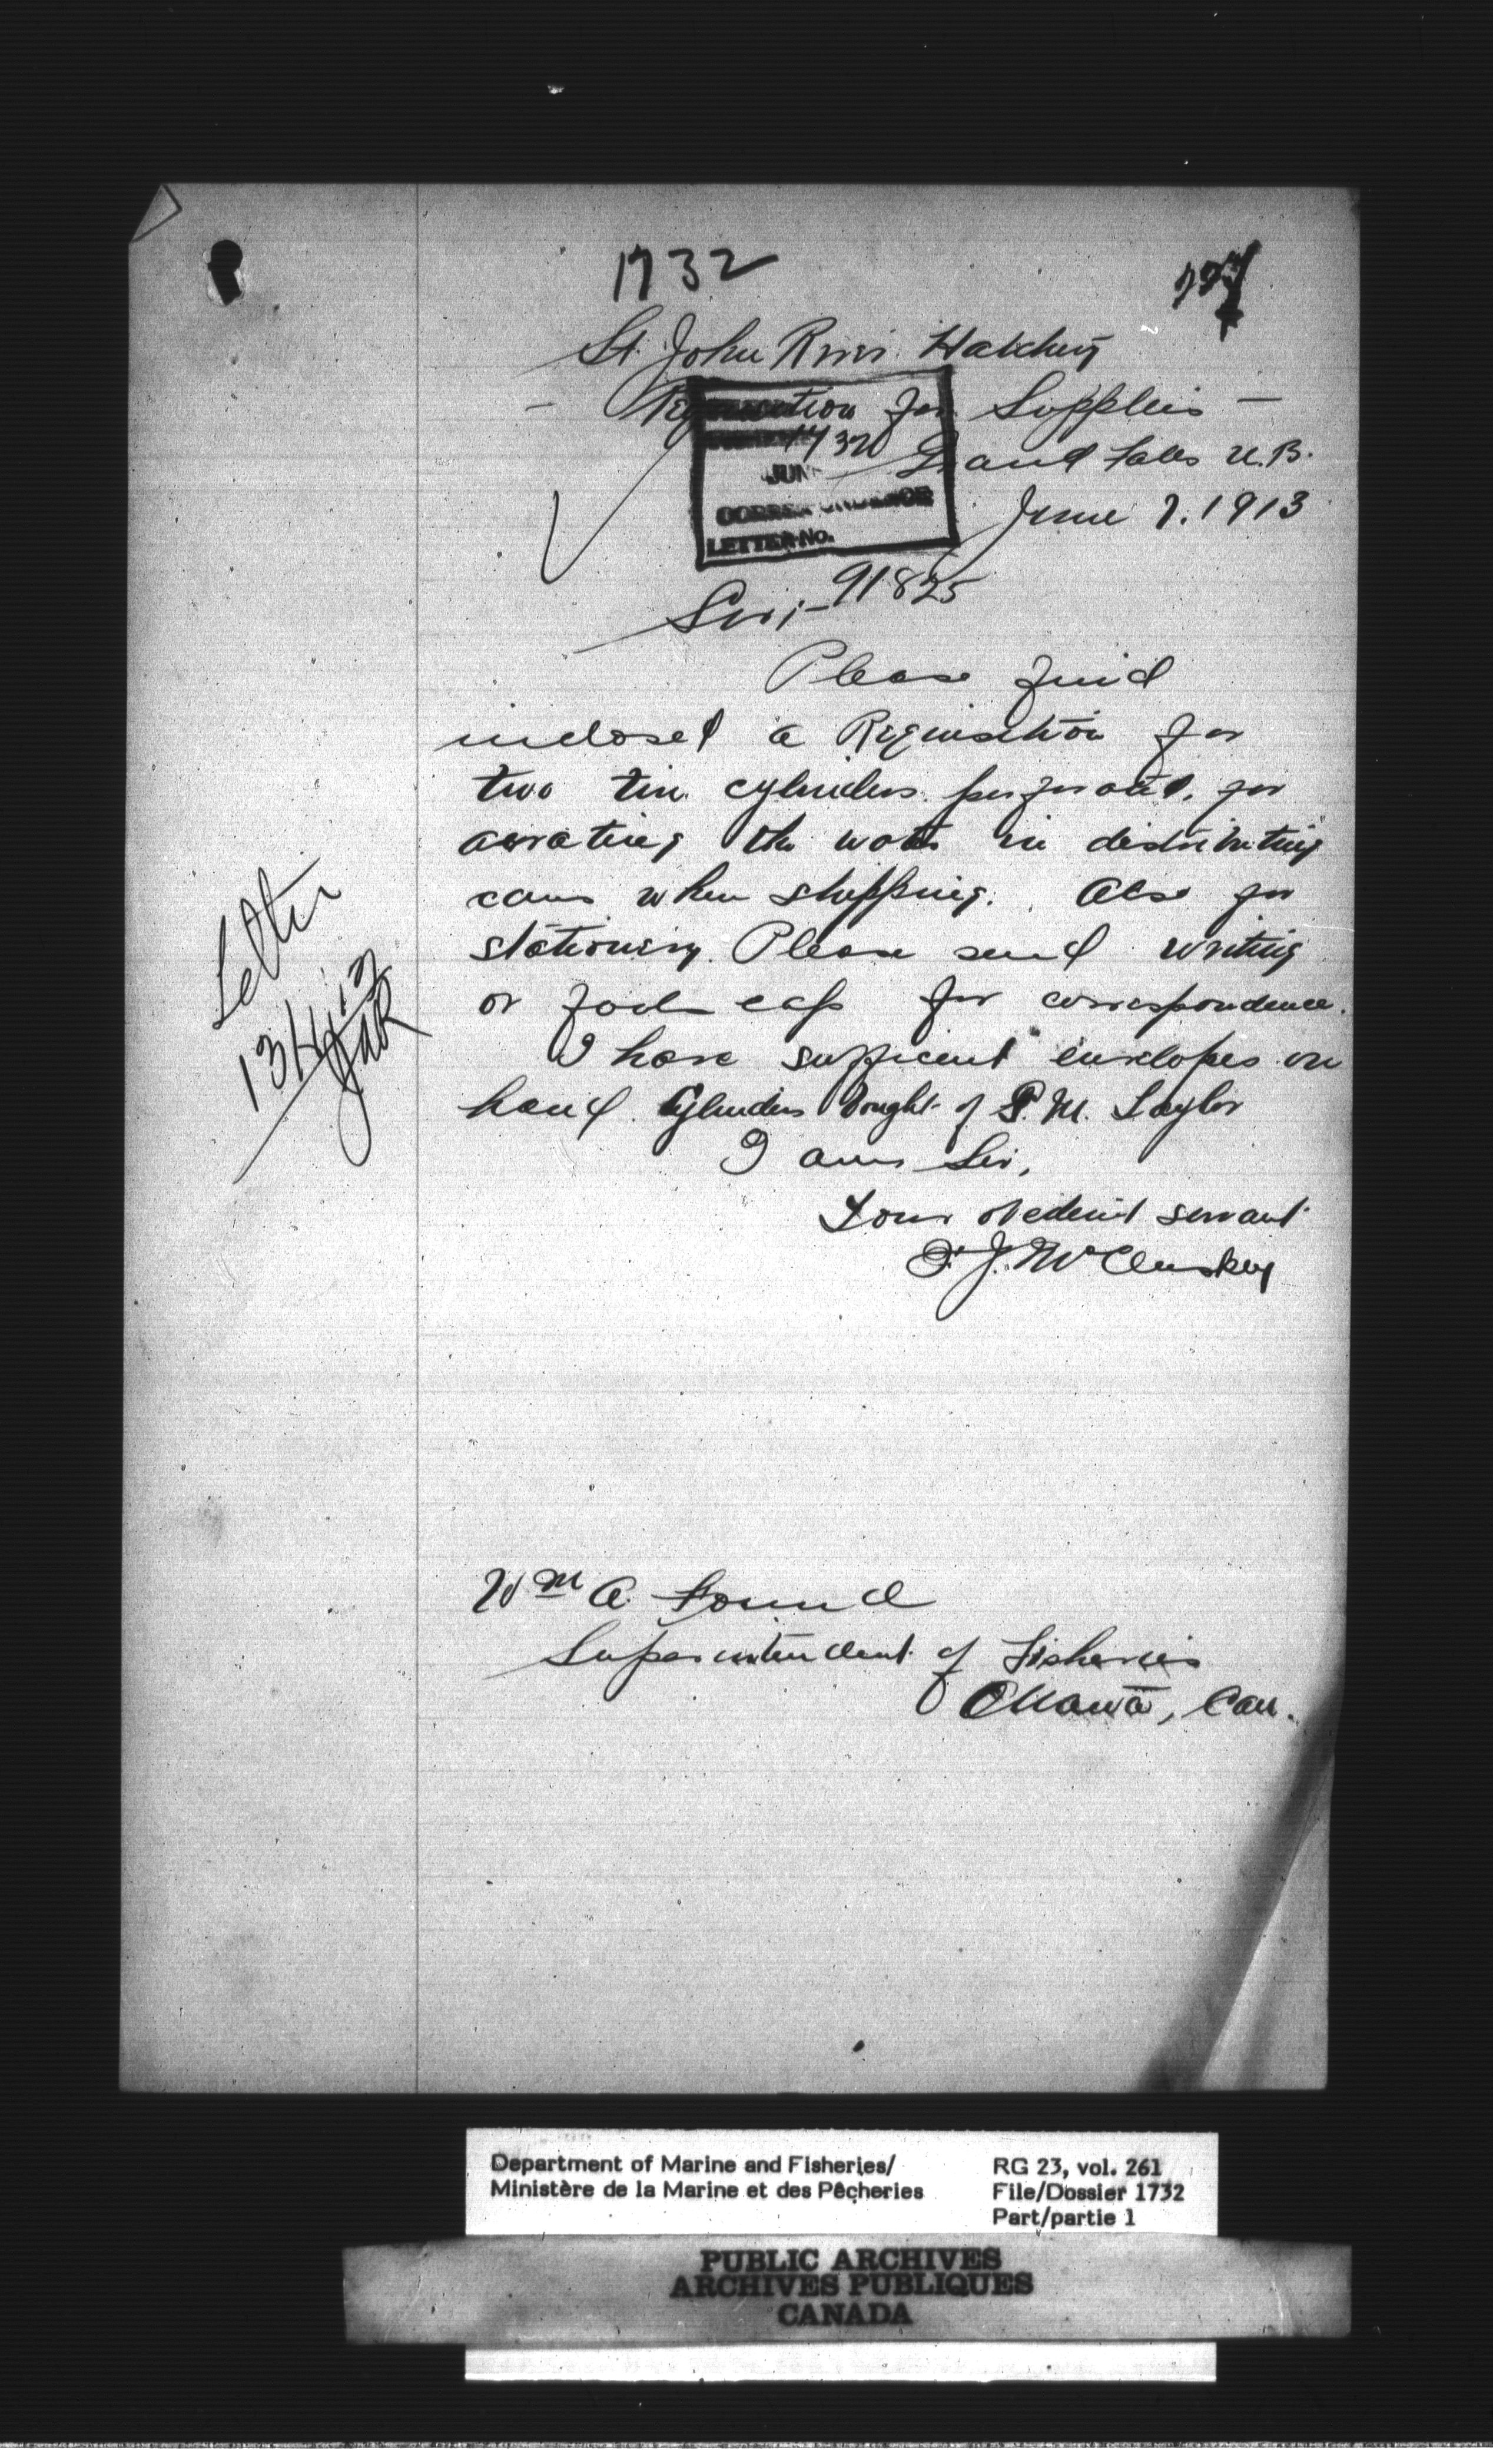 1732
St. John River Hatchery
- Requisition for Supplies -
1732
Grand Falls N.B.
JUN
June 7. 1913
CORRESPONDENCE
LETTER No.
91825
Sir;-
Please find
inclosed a Requisition for
two tin cylinders perforated, for
aerating the water in distributing
cans when shipping. Also for
stationery. Please send writing
or fools cap for correspondence.
I have sufficient envelopes on
hand. Cylinders bought of P. M. Taylor
I am Sir,
Your obedient servant
J. McCluskey
Letter
Wm A. Found
Superintendent of Fisheries
Ottawa, Can.
Department of Marine and Fisheries/
Ministère de la Marine et des Pêcheries
RG 23, vol. 261
File/Dossier 1732
Part/partie 1
PUBLIC ARCHIVES
ARCHIVES PUBLIQUES
CANADA